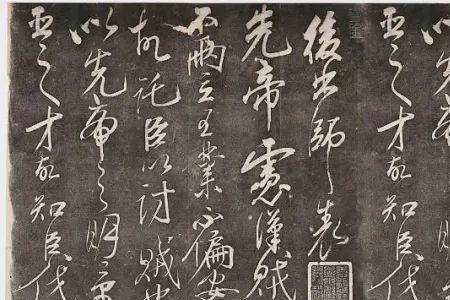 以先
臣之才故知臣伐
後出師表
先帝慮漢賊
不兩立王業不偏安
故託臣以討賊也
以先帝之明量
臣之才故知臣伐